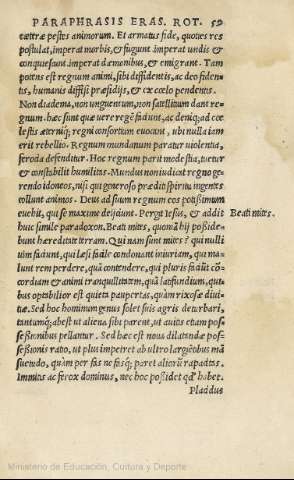 PARAPHRASIS ERAS. ROT. 59
cæteræ pestes animorum. Et armatus fide, quoties res
postulat, imperat morbis, & fugiunt: imperat undis &
conquescunt: imperat dæmonibus, & emigrant. Tam
potens est regnum animi, sibi diffidentis, ac deo fiden-
tis, humanis diffisi præsidijs, & ex cœlo pendentis.
Non diadema, non unguentum, non satellitum dant re-
gnum. hæc sunt quæ uere regē faciunt, ac deniq; ad cœ
lestis æterniq; regni consortium euocant, ubi nulla iam
erit rebellio. Regnum mundanum paratur violentia,
ferocia defenditur. Hoc regnum parit modestia, tuetur
& constabilit humilitas. Mundus non iudicat regno ge-
rendo idoneos, nisi qui generoso præditi spiritu ingentes
tollunt animos. Deus ad suum regnum eos potissimum
euehit, qui se maxime deijciunt. Pergit Iesus, & addit Beati mites.
huic simile paradoxon. Beati mites, quoniā hij posside-
bunt hæreditate terram. Qui nam sunt mites? qui nulli
uim faciunt, qui læsi facile condonant iniuriam, qui ma-
lunt rem perdere, quā contendere, qui pluris faciūt cō-
cordiam & animi tranquillitatem, quā latifundium, qui-
bus optabilior est quieta paupertas, quàm rixosæ diui-
tiæ. Sed hoc hominum genus solet suis agris deturbari,
tantumq; abest ut aliena sibi parent, ut auitis etiam pos-
seßionibus pellantur. Sed hæc est noua dilatandæ pos-
seßionis ratio, ut plus impetret ab ultro largiētibus mā
suetudo, quàm per fas nefasq; paret aliorū rapacitas.
Immitis ac ferox dominus, nec hoc poßidet qd' habet.
Placidus
Ministerio de Educación, Cultura y Deporte